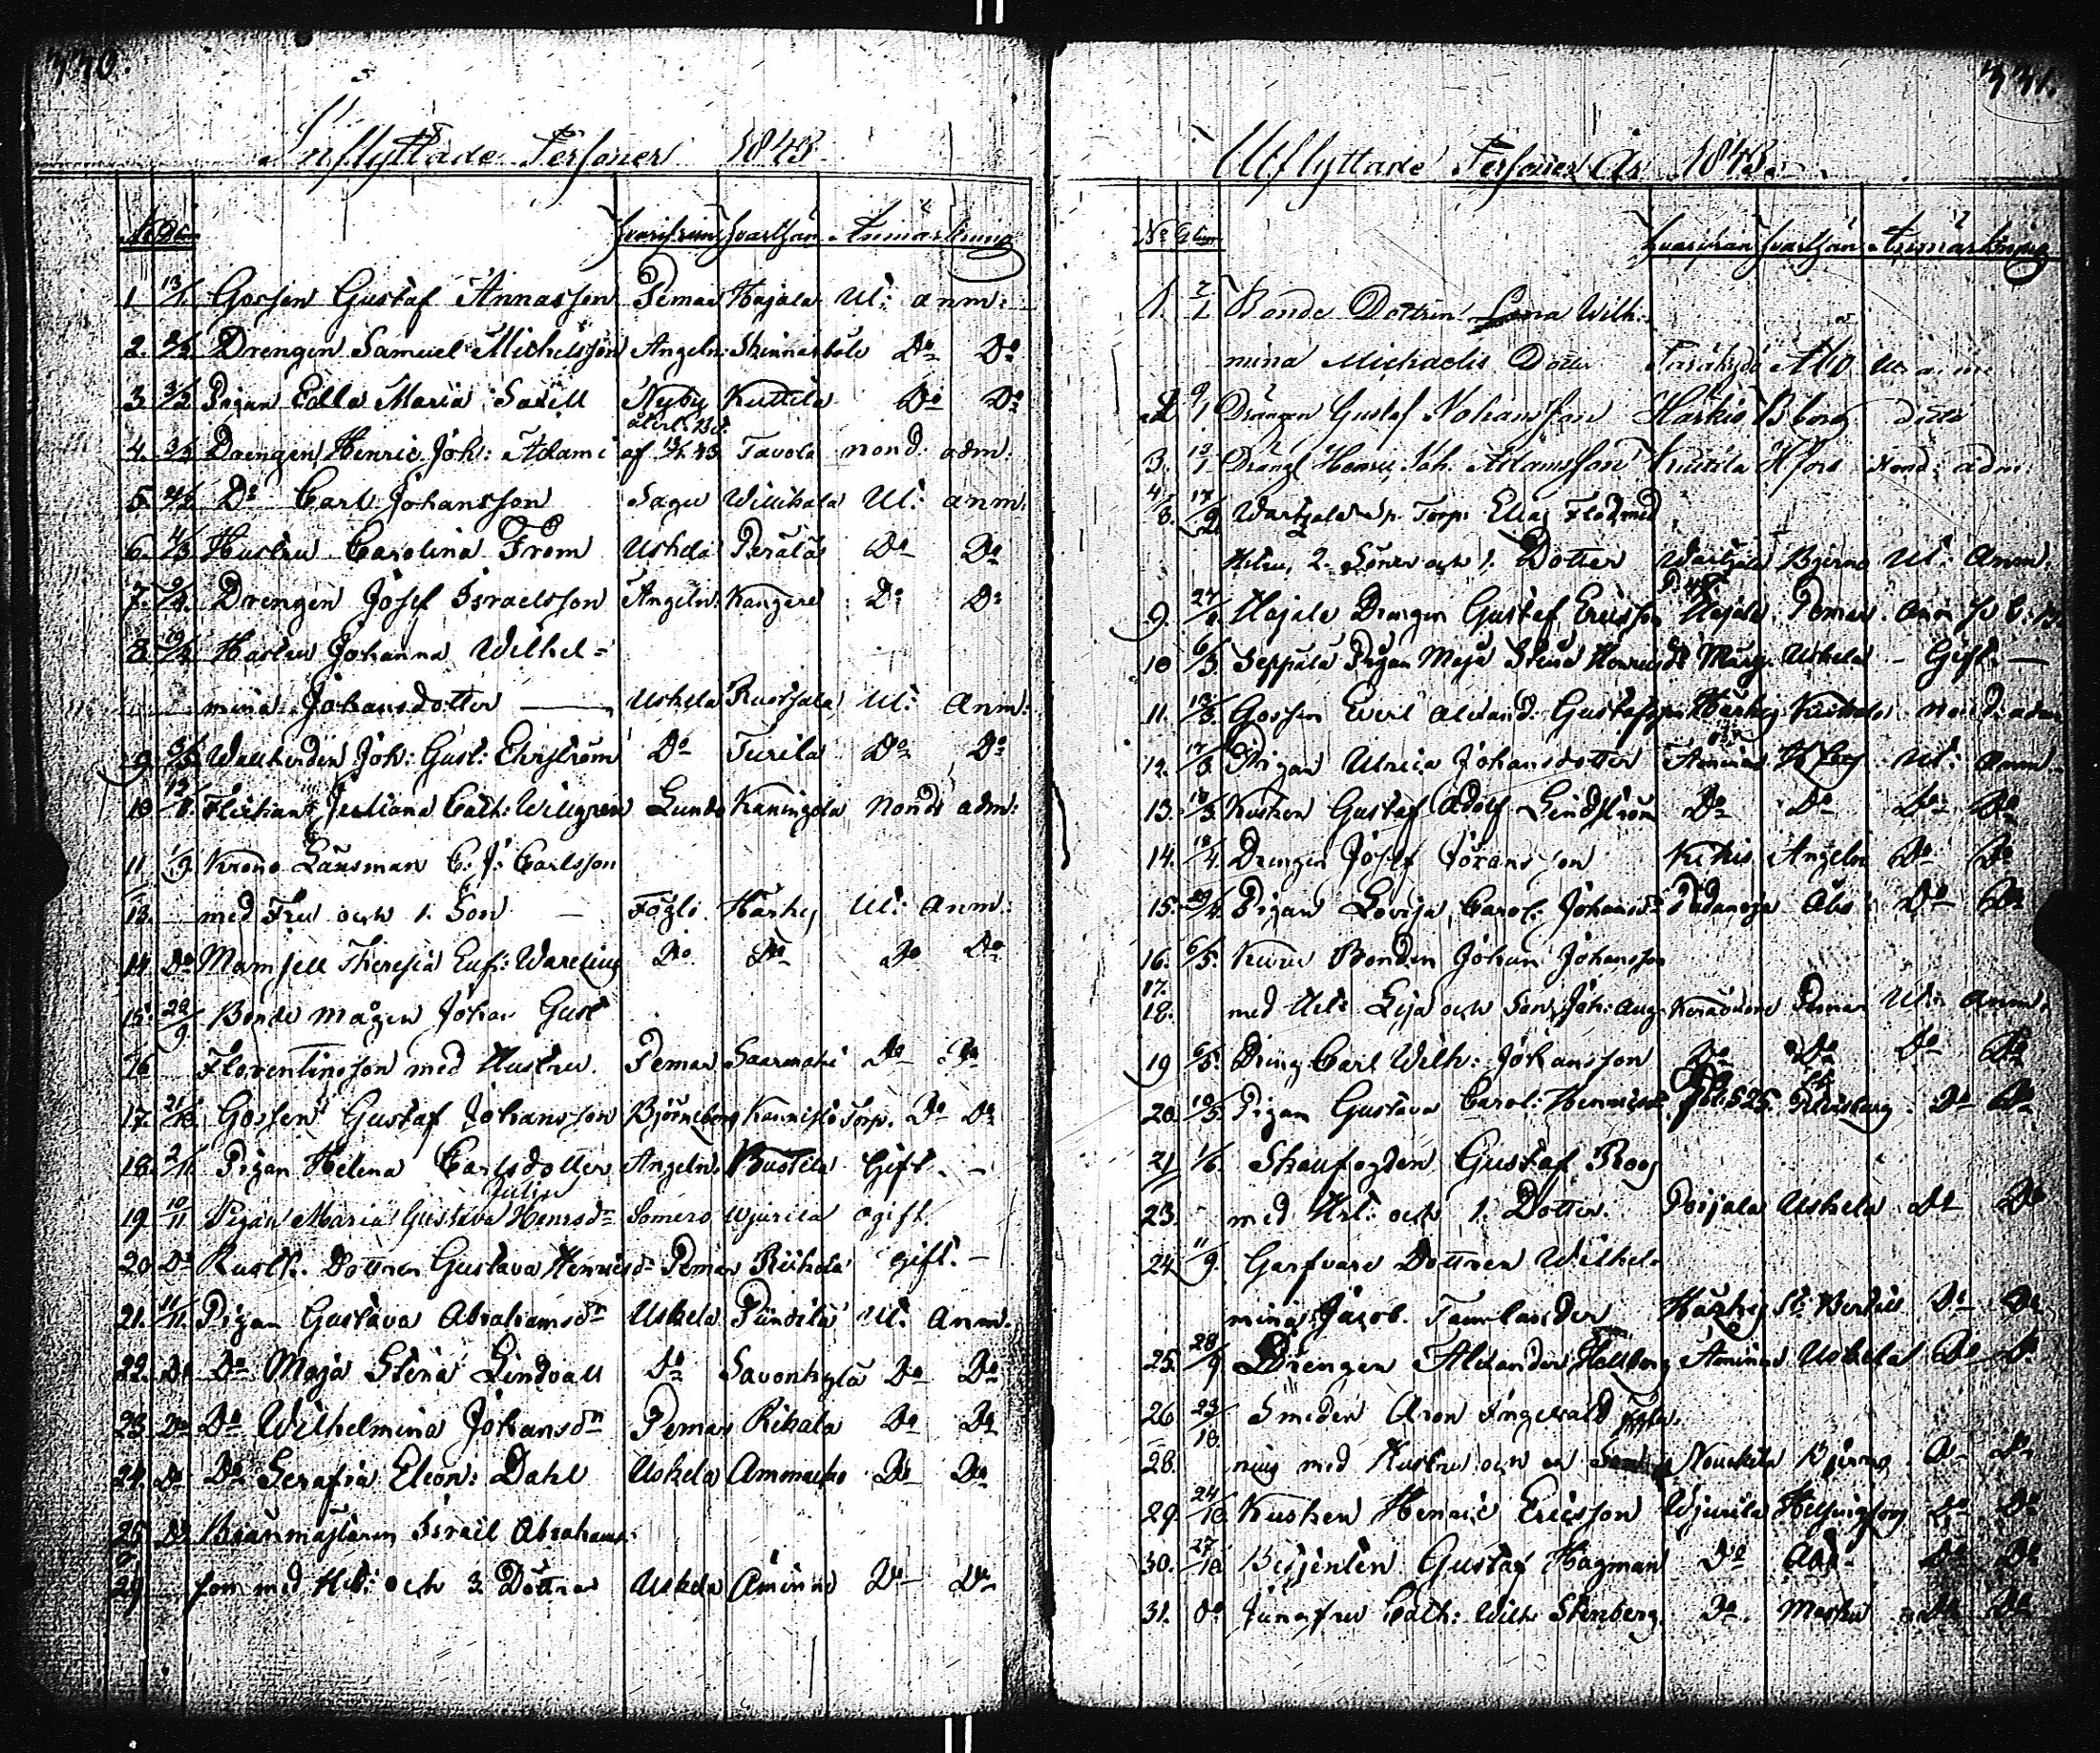 330.
Inflyttade Personer 1843
No Dat. hvarifrån hvarthän Anmärkning
1 13/1. Gossen Gustaf Annasson Pemar Hajala Ut: anm:
2. Drengen Samuel Michelsson Angeln: Skinnarböle Do Do
3 3/2 Pigan Edla Maria Nyby Kuttila Do Do
4. 3/3 Drengen Henric Joh: Adami af 13/1 43. Tavola nond. adm.
5. Do Carl Johansson Sagu Ut: anm.
6. 4/3 Hustru Carolina From Uskela Perälä Do Do
7. 9/4. Drengen Josef Israelsson Angeln. Kangare Do Do
8. 19/4 Hustru Johanna Wilhel-
mina Johansdotter — Uskela Ruossala Ut: Anm:
9 Wallherden Joh: Gust: Ehrström Do Turila Do Do
10 12/8. Flickan Juliana Cath: Willgren Lundo Kaningola Nond: adm:
11 1/9. Krono Länsman C. J. Carlsson
13. med Fru och 1. Son — Föglö Härky Ut: Anm.
14 Do Mamsell Theresia Euf: Warelius Do Do Do Do
15. 28/9. Bonde mågen Johan Gust
16 Florentinsson med Hustru. Pemar Saarmäki Do Do
17. 21/10. Gossen Gustaf Johansson Björneborg Kannisto Torp. Do Do
18. 2/11. Pigan Helena Carlsdotter Angeln. Kustila Gift. —
Julin
19. 10/11 Pigan Maria Gustava Henrsdr Somero Wjurila ogift.
20 Do Rusth. Dottren Gustava Henricsdr Pemar Riihelä gift. —
21. 11/11. Pigan Gustava Abrahamsdr Uskela Pündilä Ut: Anm.
22. Do Do Maja Stina Lindvall Do Savonkylä Do Do
23. Do Do Wilhelmina Johansdr Pemar Rikala Do Do
24. Do Do Serafia Eleon: Dahl Uskela Ammasko Do Do
25 Do Israil Abrahams-
29 son med Hst: och 3 Döttrar Uskela Åminne Do Do
331.
Utflyttade Personer År 1843.
No Datum hvarifrån hvarthän Anmärkning
1. 2/1 Bonde Dottrin Lena Wilhel-
mina Michaelis Dotter Åbo Ut: anm
2 9/1 Drängen Gustaf Johansson Härkio Bborg dito
3. 12/1 Drängl Henric Joh. Adamsson Kustila Hfors Nond: adm:
4/8. 17/2 Wartsala Sp. Torp: Elias Flod med
Hstru, 2. Söner och 1. Dotter Wartsala Bjerno Ut: Anm.
9. 24/2. Hajala Drengen Gustaf Ericsson Hajala Pemar
10 6/3. Seppälä Pigan Maja Stina Henricsdr Uskela — Gift. —
11. 12/3. Gossen Evert Alexand: Gustafsson Härky nond: adm
12. 17/3. Pigan Ulrica Johansdotter Åminne Hfors Ut: Anm.
13. 18/3. Kusken Gustaf Adolf Lindström Do Do Do Do
14. 10/4. Drengen Josef Göransson Kikis Angeln Do Do
15. 29/4. Pigan Lovisa Carol: Johansdr Padanoja Åbo Do Do
16. 6/5. Bonden Johan Johansson
17.
18. med Hst: Lisa och Son Joh: Aug. Pemar Ut: Anm.
19 6/5. Dreng Carl Wilh: Johansson Do Do Do Do
20. 10/5. Pigan Gustava Carol: Henricsdr Do Do
21 1/6. Skaufogden Gustaf Roos
23. med Hst: och 1. Dotter. Poijala Uskela Do Do
24 11/9. Garfvare Dottren Wilhel-
mina Jacob. Tamlander Härky St: Bertils Do Do
25. 28/9 Drengen Alexander Hallberg Åminne Uskela Do Do
26 23/10. Smeden Aron Ingewald
28. ning med Hustru och en Bjerno Do Do
29. 24/10. Kusken Henric Ericsson Wjurila Helsingfors Do Do
30. 27/10 Betjenten Gustaf Hagman Do Åbo. Do Do
31. Do Jungfru Cath: Wilh. Stenberg. Do. Masku Do Do